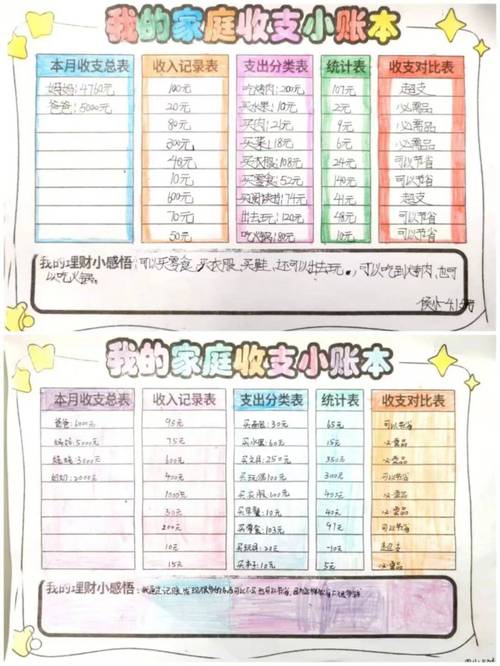 我的家庭收支小账本
本月收支总表 收入记录表 支出分类表 统计表 收支对比表
妈妈:4760元 100元 吃烤肉:200元 107元 超支
爸爸:5000元 20元 买水果:10元 2元 必需品
80元 买肉:26元 9元 必需品
300元 买菜:18元 6元 必需品
40元 买衣服:108元 24元 可以节省
10元 买零食:52元 140元 可以节省
600元 74元 41元 超支
70元 出去玩:120元 48元 可以节省
50元 吃火锅:80元 10元 可以节省
我的理财小感悟:可以买零食,买衣服、买鞋,还可以出去玩,可以吃到烤肉,也可
以吃火锅。
我的家庭收支小账本
本月收支总表 收入记录表 支出分类表 统计表 收支对比表
爸爸:6000元 95元 30元 65元 可以节省
妈妈:5000元 75元 买水果:60元 15元 必需品
3000元 600元 买文具:250元 350元 必需品
2000元 400元 买玩偶100元 300元 必需品
1000元 买衣服600元 400元 必需品
50元 10元 40元 必需品
200元 买零食:103元 97元 可以节省
10元 买玩具:20元 -10元 超支
15元 买本子:10元 5元 必需品
我的理财小感悟: